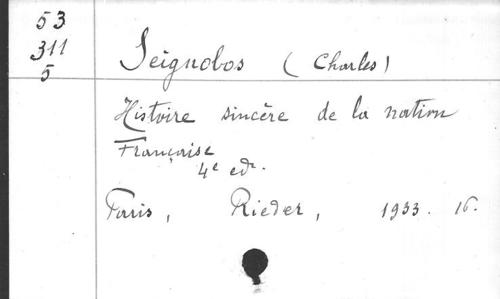 53
311
5
Seignobos (Charles)
Histoire sincère de la nation
Française
4e edr.
Paris, Rieder, 1933. 16.